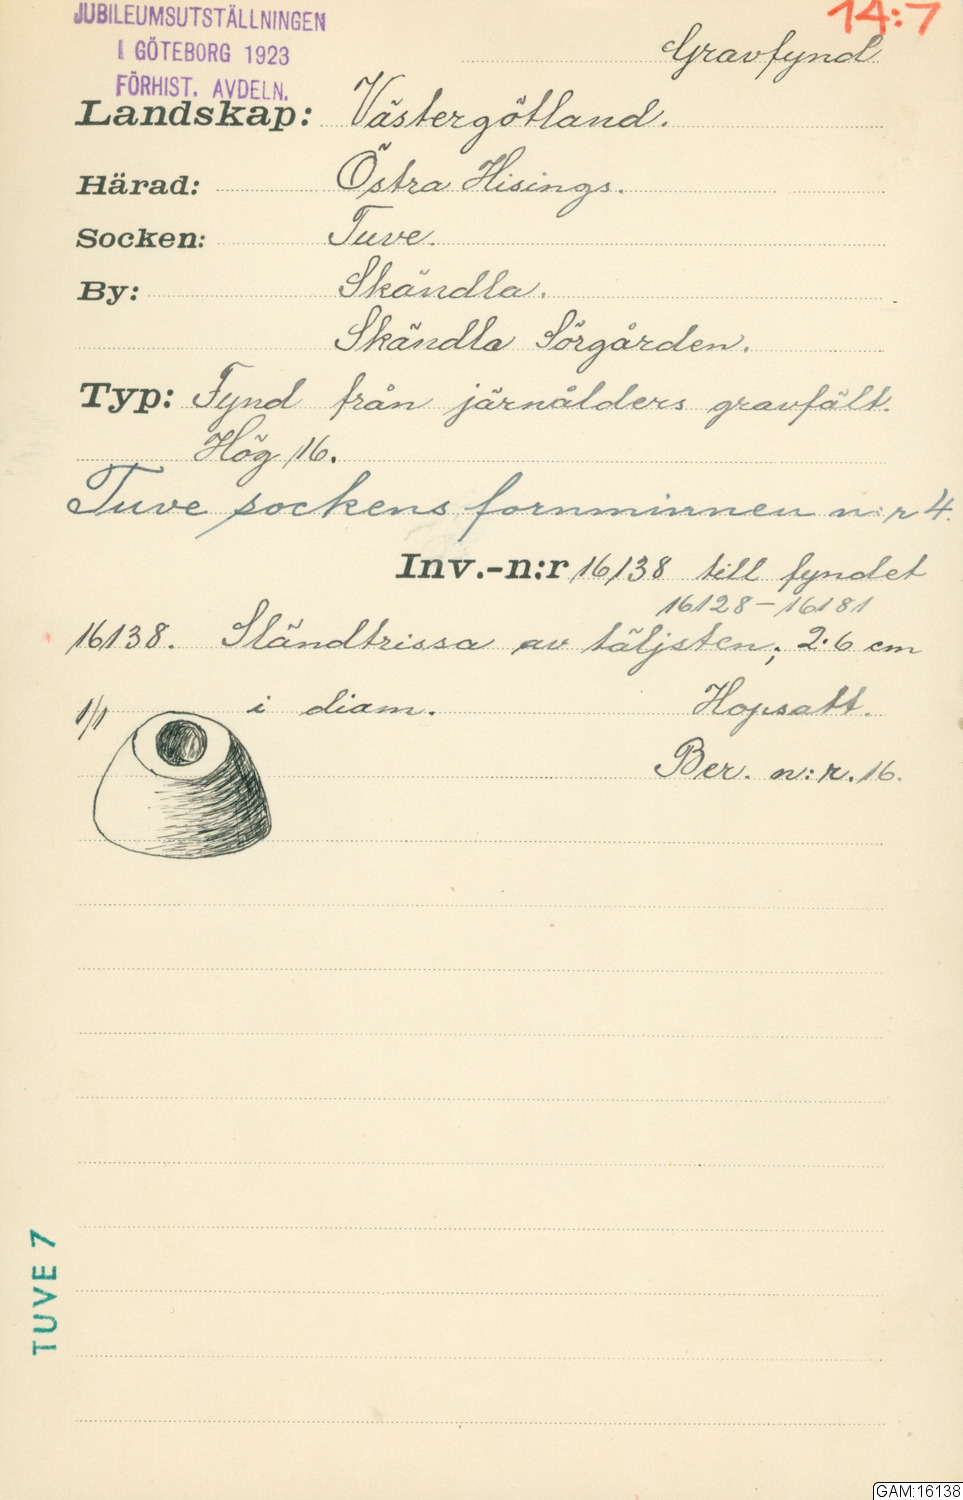 JUBILEUMSUTSTÄLLNINGEN
I GÖTEBORG 1923
FÖRHIST. AVDELN.
14:7
Gravfynd
Landskap: Västergötland.
Härad: Östra Hisings.
Socken: Tuve.
By: Skändla.
Skändla Sörgården.
Typ: Fynd från järnålders gravfält.
Hög 16.
Tuve sockens fornminnen n:r 4.
Inv.-n:r 16138 till fyndet
16128-16181
16138. Sländtrissa av täljsten; 2.6 cm
1/1 i diam. Hopsatt.
Ber. n:r. 16.
TUVE 7
GAM:16138